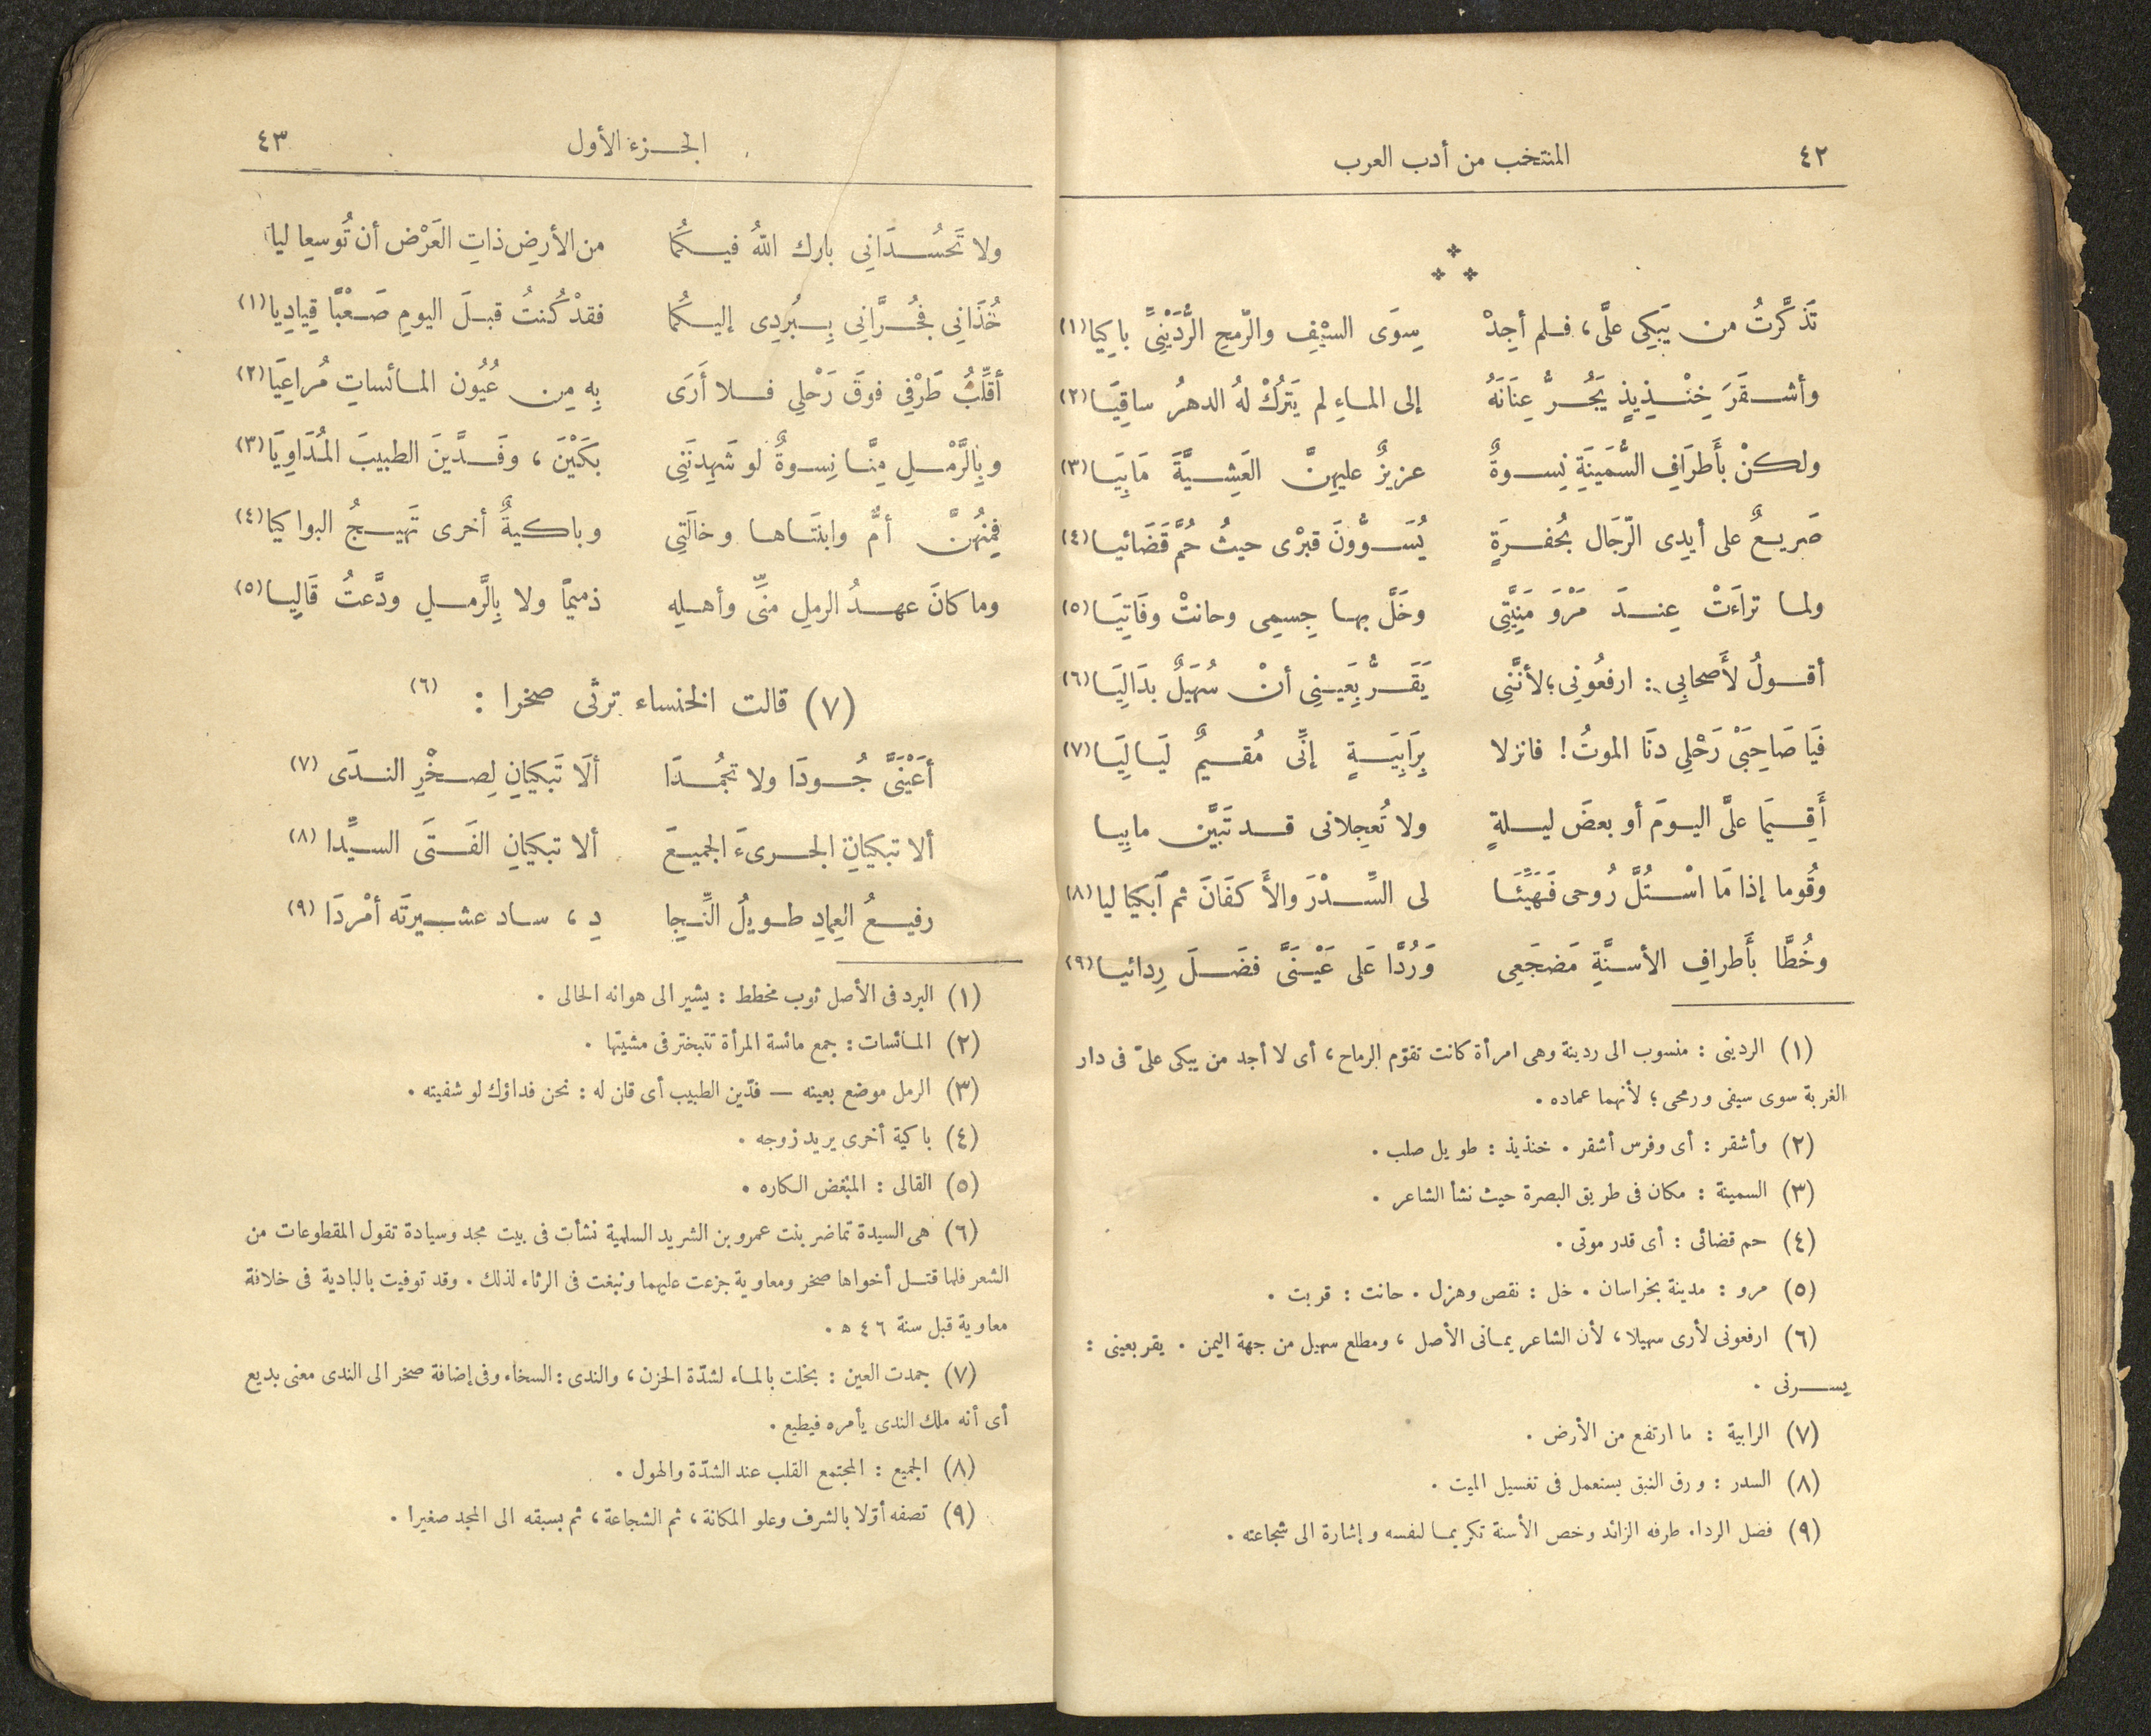 ٤٢ المنتخب من أدب العرب
تَذَكَّرتُ من يَبكِى علىَّ ، فلم أجِدْ سِوَى السيْفِ والرّمحِ الرُّدَيْنِىِّ باكِيَا (١)
وأشقَرَ خِنْذِيذٍ يَجُرُّ عِنَانَهُ إلى الماءِ لم يَترُكْ لهُ الدهرُ ساقِيَا (٢)
ولكنْ بأَطرَافِ السُّمَينَةِ نِسوةٌ عزيزٌ عليهِنَّ العَشِيَّةَ مَابِيَا (٣)
صَريعٌ على أيدِى الرّجَال بُحفرَةٍ يُسَوُّونَ قبْرى حيثُ حُمَّ قَضَائيا (٤)
ولما تراءَتْ عِندَ مَرْوَ مَنِيَّتِى وخَلَّ بها جِسمِى وحانتْ وفَاتِيَا (٥)
أقولُ لأَصحابِى : ارفعُونِى ؛ لأنَّنِى يَقَرُّ بِعَينِى أنْ سُهَيلٌ بدَالِيَا (٦)
فيَا صَاحِبَىْ رَحْلِى دنَا الموتُ ! فانزلا بِرَابِيَةٍ إنِّى مُقيمٌ لَيَالِيَا (٧)
أَقِيمَا علىَّ اليومَ أو بعضَ ليلةٍ ولا تُعجِلانى قد تَبَيَّن مابِيا
وقُوما إذا مَا اسْتُلَّ رُوحى فَهَيِّئَا لى السِّدْرَ والأَكفَانَ ثم آبكيا ليا (٨)
وخُطَّا بأَطرافِ الأسنَّةِ مَضجَعِى وَرُدَّا عَلى عَيْنَىَّ فضَلَ رِدائيا (٩)
(١) الردينى : منسوب الى ردينة وهى امرأة كانت تقوّم الرماح ، أى لا أجد من يبكى علىّ فى دار
الغربة سوى سيفى ورمحى ؛ لأنهما عماده .
(٢) وأشقر : أى وفرس أشقر . خنذيذ : طويل صلب .
(٣) السمينة : مكان فى طريق البصرة حيث نشأ الشاعر .
(٤) حم قضائى : أى قدر موتى .
(٥) مرو : مدينة بخراسان . خل : نقص وهزل . حانت : قربت .
(٦) ارفعونى لأرى سهيلا ، لأن الشاعر يمانى الأصل ، ومطلع سهيل من جهة اليمن . يقر بعينى :
يسرنى .
(٧) الرابية : ما ارتفع من الأرض .
(٨) السدر : ورق النبق يستعمل فى تغسيل الميت .
(٩) فضل الرداء طرفه الزائد وخص الأسنة تكريما لنفسه وإشارة الى شجاعته .
الجزء الأول ٤٣
ولا تَحسُدَانِى بارك اللهُ فيكُما من الأرضِ ذاتِ العَرْض أن تُوسِعا ليا
خُذَانِى فجُرَّانِى بِبُردِى إليكُما فقدْ كُنتُ قبلَ اليومِ صَعْبًا قِيادِيا (١)
أقَلِّبُ طَرْفِى فوقَ رَحْلِى فلا أَرَى بِهِ مِن عُيُون المائساتِ مُراعِيَا (٢)
وبِالرَّمْلِ مِنَّا نِسوةٌ لو شَهِدنَنِى بكَيْنَ ، وفَدَّينَ الطبيبَ المُدَاوِيَا (٣)
فمِنهُنَّ أمٌّ وابنَتَاها وخالَتِى وباكيةٌ أخرى تَهيجُ البواكيا (٤)
وما كانَ عهدُ الرملِ منِّى وأهلِه ذميمًا ولا بِالرَّملِ ودَّعتُ قَالِيا (٥)
(٧) قالت الخنساء ترثى صخرا : (٦)
أَعَيْنَىَّ جُودَا ولا تجمُدَا ألَا تَبكيانِ لِصخْرِ الندَى (٧)
ألا تبكيانِ الجرىءَ الجميعَ ألا تبكيانِ الفَتَى السيِّدا (٨)
رفيعُ العِمادِ طويلُ النِّجِا دِ ، ساد عشيرتَه أمْردَا (٩)
(١) البرد فى الأصل ثوب مخطط : يشير الى هوانه الحالى .
(٢) المائسات : جمع مائسة المرأة تتبختر فى مشيتها .
(٣) الرمل موضع بعينه — فدّين الطبيب أى قلن له : نحن فداؤك لو شفيته .
(٤) باكية أخرى يريد زوجه .
(٥) القالى : المبغض الكاره .
(٦) هى السيدة تماضر بنت عمرو بن الشريد السلمية نشأت فى بيت مجد وسيادة تقول المقطوعات من
الشعر فلما قتل أخواها صخر ومعاوية جزعت عليهما ونبغت فى الرثاء لذلك . وقد توفيت بالبادية فى خلافة
معاوية قبل سنة ٤٦ ه .
(٧) جمدت العين : بخلت بالماء لشدّة الحزن ، والندى : السخاء وفى إضافة صخر الى الندى معنى بديع
أى أنه ملك الندى يأمره فيطيع .
(٨) الجميع : المجتمع القلب عند الشدّة والهول .
(٩) تصفه أوّلا بالشرف وعلو المكانة ، ثم الشجاعة ، ثم بسبقه الى المجد صغيرا .